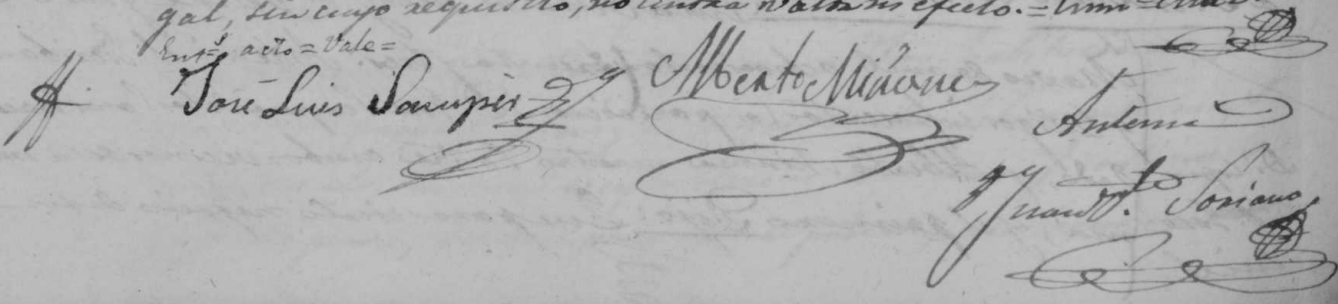 gal, sin cuyo requisito, no tendrá valor ni efecto. =
Entˢ acto = Vale =
José Luis Samper y
Alberto Miñone
Antemi
Juan Soriano